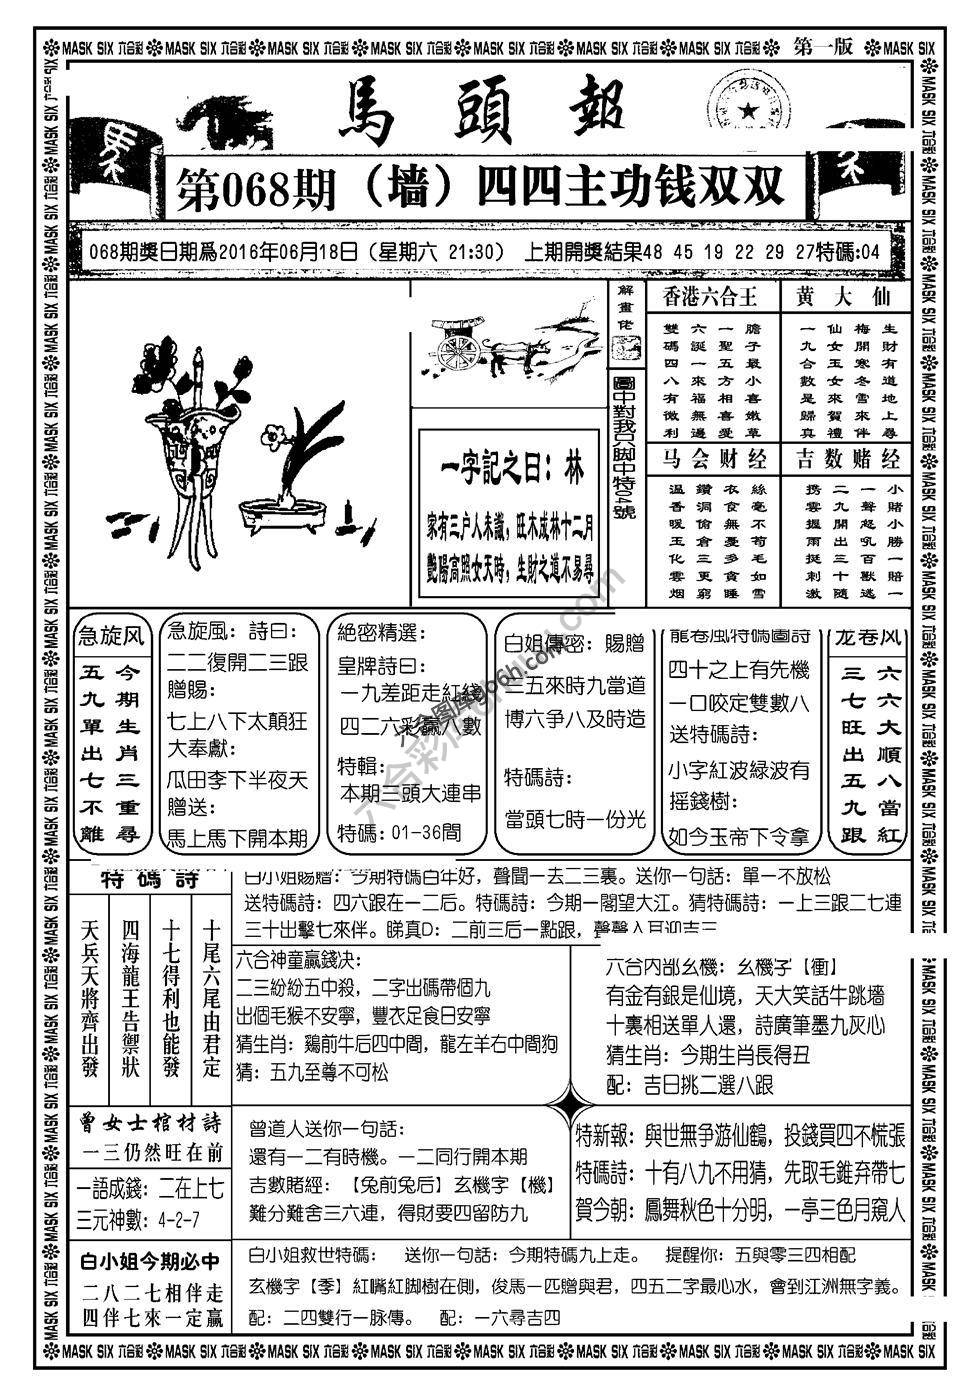 MASK SIX 六合彩 MASK SIX 六合彩 MASK SIX 六合彩 MASK SIX 六合彩 MASK SIX 六合彩 MASK SIX 六合彩 MASK SIX 六合彩 第一版 MASK SIX
馬頭報
第068期（墙）四四主功钱双双
068期獎日期爲2016年06月18日（星期六 21:30） 上期開獎結果48 45 19 22 29 27特碼:04
解畫佬
圖中對我只脚中特04號
一字記之曰：林
家有三户人未識，旺木成林十二月
艷陽高照女天時，生財之道不易尋
香港六合王
膽子最小喜嫩草
一聖五方相喜愛
六誕一來福無邊
雙碼四八有微利
黄大仙
生財有道地上尋
梅開寒冬雪來伴
仙女玉女來賀禮
一九合數是歸真
马会财经
絲毫不苟毛如雪
衣食無憂多貪睡
鑽洞偷倉三更窮
温香暖玉化雲烟
吉数赌经
小賭小勝一賠一
一聲怒吼百獸逃
二九開出三十隨
携雲握雨挺刺激
急旋风
今期生肖三重尋
五九單出七不離
急旋風：詩曰：
二二復開二三跟
贈賜：
七上八下太顛狂
大奉獻：
瓜田李下半夜天
贈送：
馬上馬下開本期
絶密精選：
皇牌詩曰：
一九差距走紅綫
四二六彩贏八數
特輯：
本期三頭大連串
特碼：01-36間
白姐傳密：賜贈
二五來時九當道
博六争八及時造
特碼詩：
當頭七時一份光
龍卷風特碼圖詩
四十之上有先機
一口咬定雙數八
送特碼詩：
小字紅波緑波有
摇錢樹：
如今玉帝下令拿
龙卷风
六六大順八當紅
三七旺出五九跟
特碼詩
十尾六尾由君定
十七得利也能發
四海龍王告禦狀
天兵天將齊出發
白小姐賜贈：今期特碼百年好，聲聞一去二三裏。送你一句話：單一不放松
送特碼詩：四六跟在一二后。特碼詩：今期一閣望大江。猜特碼詩：一上三跟二七連
三十出擊七來伴。睇真D：二前三后一點跟，聲聲入耳迎吉三
六合神童贏錢决：
二三紛紛五中殺，二字出碼帶個九
出個毛猴不安寧，豐衣足食日安寧
猜生肖：鷄前牛后四中間，龍左羊右中間狗
猜：五九至尊不可松
六合内部幺機：幺機字【衝】
有金有銀是仙境，天大笑話牛跳墻
十裏相送單人還，詩廣筆墨九灰心
猜生肖：今期生肖長得丑
配：吉日挑二選八跟
曾女士棺材詩
一三仍然旺在前
一語成錢：二在上七
三元神數：4-2-7
曾道人送你一句話：
還有一二有時機。一二同行開本期
吉數賭經：【兔前兔后】玄機字【機】
難分難舍三六連，得財要四留防九
特新報：與世無争游仙鶴，投錢買四不慌張
特碼詩：十有八九不用猜，先取毛錐弃帶七
賀今朝：鳳舞秋色十分明，一亭三色月窺人
白小姐今期必中
二八二七相伴走
四伴七來一定贏
白小姐救世特碼： 送你一句話：今期特碼九上走。 提醒你：五與零三四相配
玄機字【季】紅嘴紅脚樹在側，俊馬一匹贈與君，四五二字最心水，會到江洲無字義。
配：二四雙行一脉傳。 配：一六尋吉四
MASK SIX 六合彩 MASK SIX 六合彩 MASK SIX 六合彩 MASK SIX 六合彩 MASK SIX 六合彩 MASK SIX 六合彩 MASK SIX 六合彩 MASK SIX 六合彩 MASK SIX